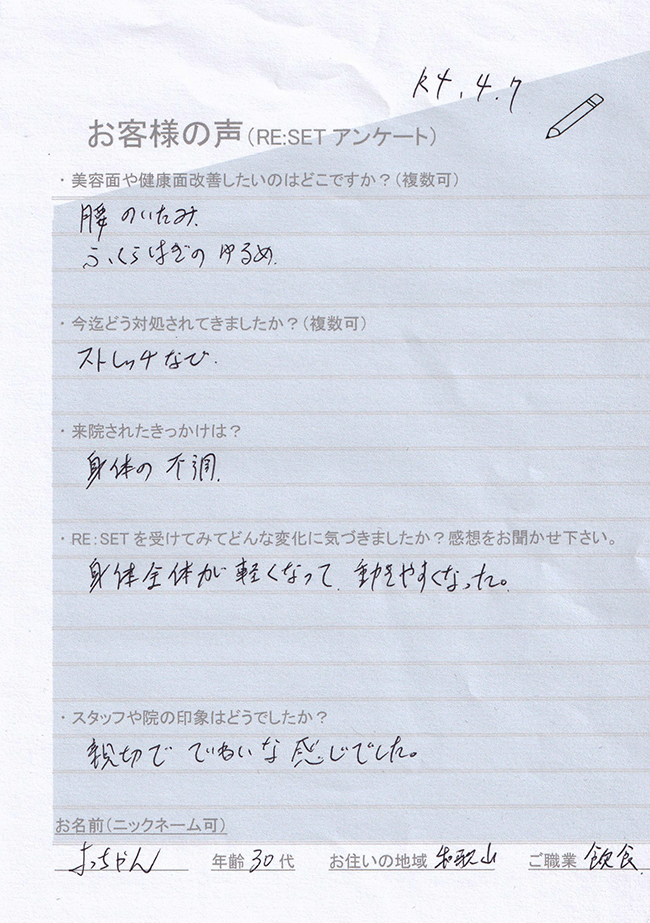 R4.4.7
お客様の声(RE:SET アンケート)
・美容面や健康面改善したいのはどこですか?(複数可)
腰のいたみ
ふくらはぎのゆるめ.
・今迄どう対処されてきましたか?(複数可)
ストレッチなど.
・来院されたきっかけは?
身体の不調.
・RE:SETを受けてみてどんな変化に気づきましたか?感想をお聞かせ下さい。
身体全体が軽くなって、動きやすくなった。
・スタッフや院の印象はどうでしたか?
親切でていねいな感じでした。
お名前(ニックネーム可)
年齢 30代 お住いの地域 和歌山 ご職業 飲食